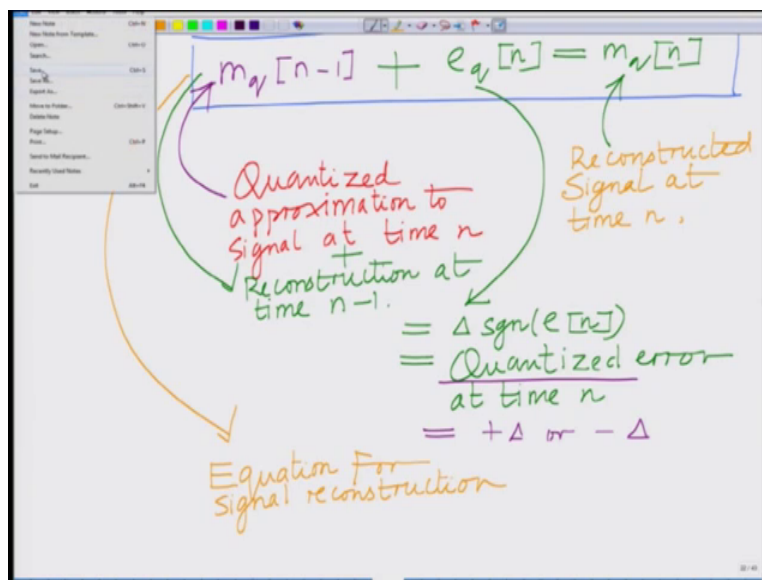 New Note Ctrl+N
New Note from Template...
Open... Ctrl+O
Search...
Save Ctrl+S
Save As...
Export As...
Move to Folder... Ctrl+Shift+V
Delete Note
Page Setup...
Print... Ctrl+P
Send to Mail Recipient...
Recently Used Notes
Exit Alt+F4
m_q[n-1] + e_q[n] = m_q[n]
Reconstructed
Signal at
time n.
Quantized
approximation to
signal at time n
+
Reconstruction at
time n-1.
= Δ sgn(e[n])
= Quantized error
at time n
= +Δ or -Δ
Equation For
signal reconstruction